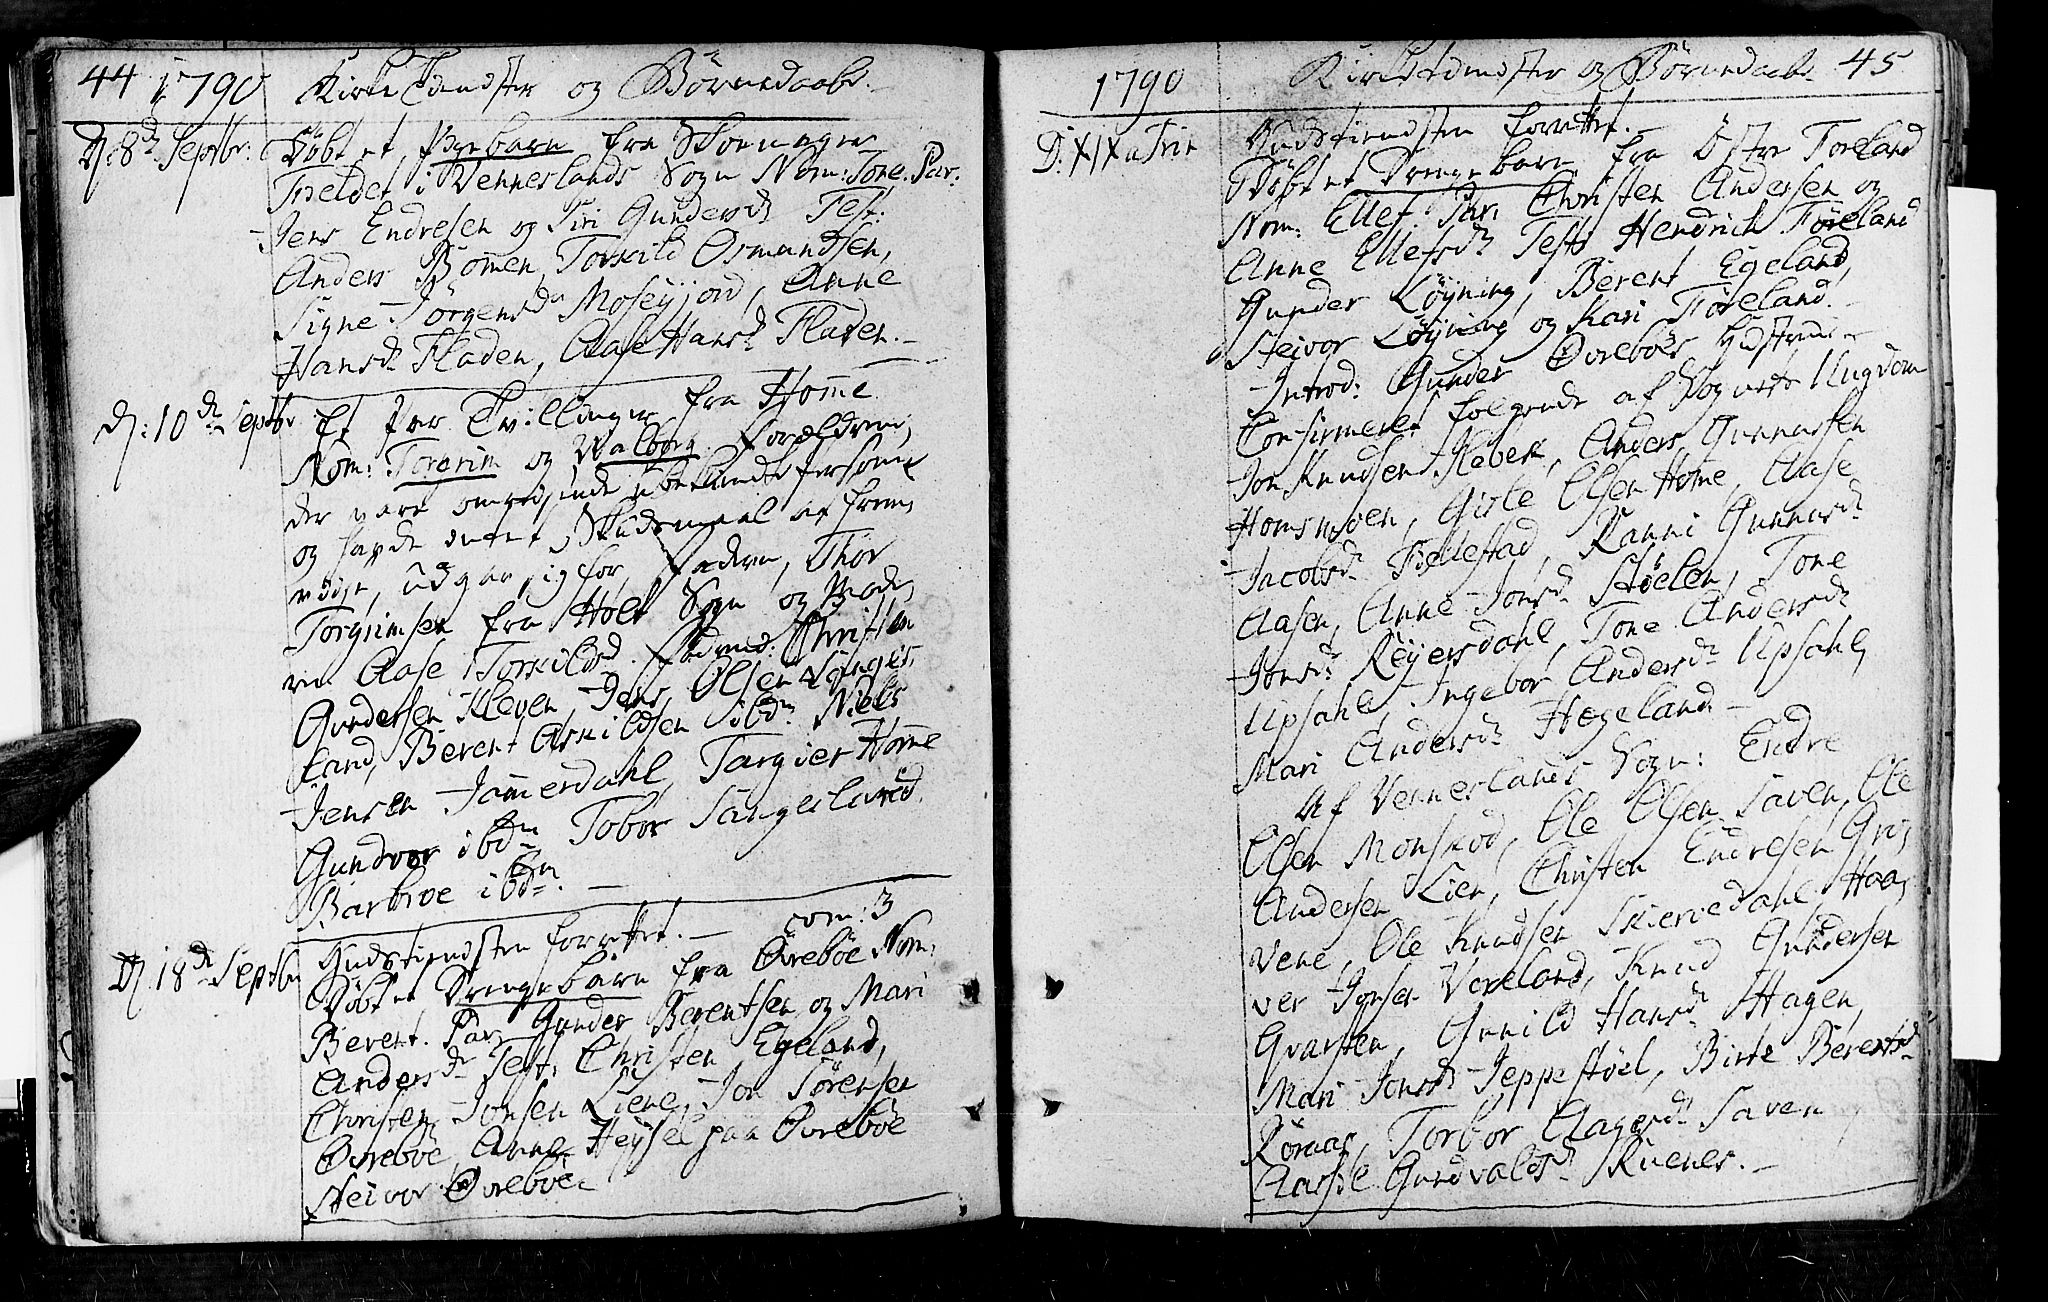 44 1790 Kirke Tienester og Børnedaab.
D: 8d. Septbr: Døbt et Pigebarn fra Skomager
Fieldet i Vennerslands Sogn Nom: Tone. Par:
Jens Endresen og Siri Gundersd. Test:
Anders Bomen, Torkild Osmundsen,
Signe Jörgensd. Moseyjord, Anne
Hansd. Fladen, Aase Hansd. Fladen.
D: 10de Septbr Et Par Tvillinger fra Home
Nom: Torgrim og Walborg. Forældrene,
der vare omreysende ubekiendte Personer
og havde intet Skudsmaal at frem,
viise, udgav sig for, Fadren, Thor
Torgrimsen fra Holt Sogn og Mode,
ren Aase Torkildsd. Fadder: Christen
Gundersen Kleven, Jens Olsen Sanges,
land, Berent Askildsen ibdm Niels
Jensen Jammerdahl, Targier Home
Gundvor ibdm Tobor Sangesland.
Barbroe ibdm. —
D: 18de Septbr Gudstienesten forrettet. — com: 3
Døbt et Drengebarn fra Øvrebøe Nom:
Berent. Par, Gunder Berentsen og Mari
Andersd. Test, Christen Egeland,
Christen Jonsen Liene, Jon Sörensen
Øvrebøe, Anne Heyssel paa Øvrebøe
Heivor Øvrebøe.
1790 Kirketienester og Børnedaab 45
D: XIX a Trin Gudstienesten forrettet. —
Døbt et Drengebarn fra Östre Føreland
Nom: Ellef. Par: Christen Andersen og
Anne Ellefsd. Test: Hendrich Føreland
Gunder Løyning, Berent Egeland,
Heivor Løyning og Kari Føreland. —
Introd: Gunder Øvrebøes Hustrue —
Confirmeret følgende af Sognets Ungdom
Jon Knudsen Klebek, Anders Gunnarsen
Homsmoen, Gisle Olsen Home, Aase
Jacobsd. Fiellestad, Ranni Gunnarsd.
Aasen, Anne Jonsd. Støelen, Tone
Jonsd. Reyersdahl, Tone Andersd.
Upsahl, Ingebor Andersd. Upsahl,
Mari Andersd. Hægeland —
Af Vennerslands Sogn: Endre
Olsen Monskod, Ole Olsen Saven, Ole
Andersen Lien, Christen Endresen Grø,
vene, Ole Knudsen Skieredahl, Haa,
ver Jonsen Vereland, Knud Gundersen
Gvarsten, Gunild Hansd. Hagen
Mari Jonsd. Jeppestøel, Birte Berentsd.
Röraas, Torbor Aagesd. Saven
Aasil Gundvalsd. Kuenes. —